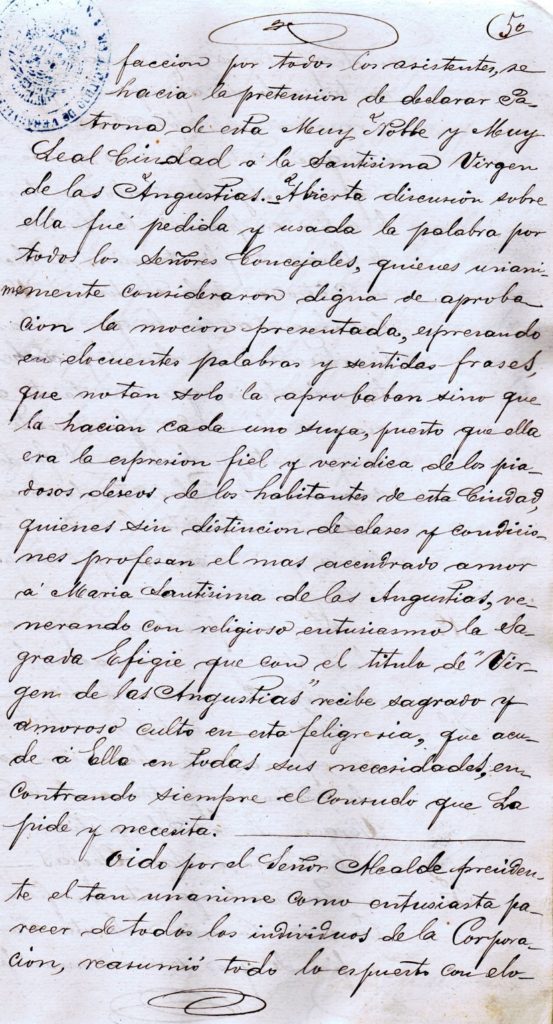 50
faccion por todos los asistentes, se
hacia la pretension de declarar Pa
trona de esta Muy Noble y Muy
Leal Ciudad á la Santisima Virgen
de las Angustias. Abierta discusión sobre
ella fué pedida y usada la palabra por
todos los Señores Concejales, quienes unani
memente consideraron digna de aproba
cion la mocion presentada, espresando
en elocuentes palabras y sentidas frases,
que no tan solo la aprobaban sino que
la hacian cada uno suya, puesto que ella
era la espresion fiel y veridica de los pia
dosos deseos de los habitantes de esta Ciudad,
quienes sin distincion de clases y condicio
nes profesan el mas acendrado amor
á Maria Santisima de las Angustias, ve-
nerando con religioso entusiasmo la Sa
grada Efigie que con el titulo de "Vir-
gen de las Angustias" recibe sagrado y
amoroso culto en esta feligresia, que acu-
de á Ella en todas sus necesidades, en-
contrando siempre el Consuelo que La
pide y necesita.
Oido por el Señor Alcalde presiden-
te el tan unanime como entusiasta pa-
recer de todos los individuos de la Corpora-
cion, reasumió todo lo espuesto con elo-